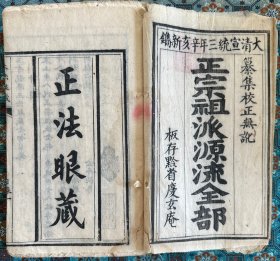 大清宣統三年辛亥新鐫
纂集校正無訛
正宗祖派源流全部
板存黔省慶玄庵
正法眼藏